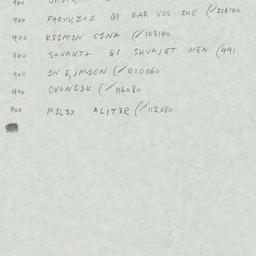 900 FARVU,Z+1 GI FAR VOS ZHE (/216100
900 KSIMIN CINA (/103140
900 S+VAKT+ GI SHVAJGT MEN (491
900 IN E,JMICN (/010060
900 CVONDIK (/116080
900 MILEX ALITER (/112080